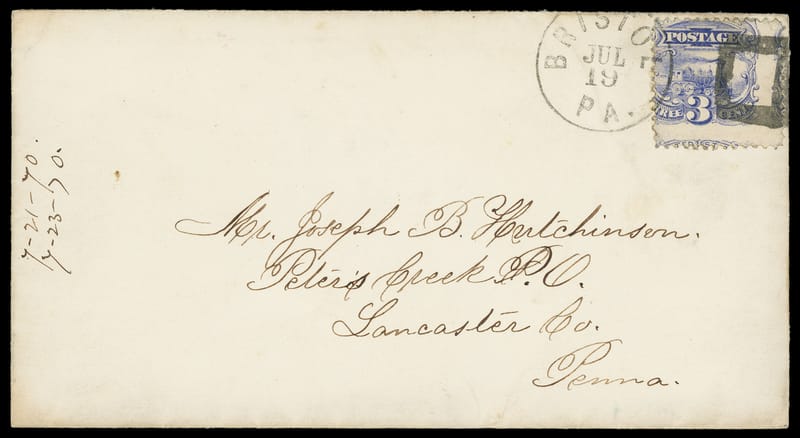 BRISTOL
JUL
19
PA.
POSTAGE
THREE 3 CENTS
Mr. Joseph B. Hutchinson.
Peter's Creek P.O.
Lancaster Co.
Penna.
7-21-70.
7-23-70.